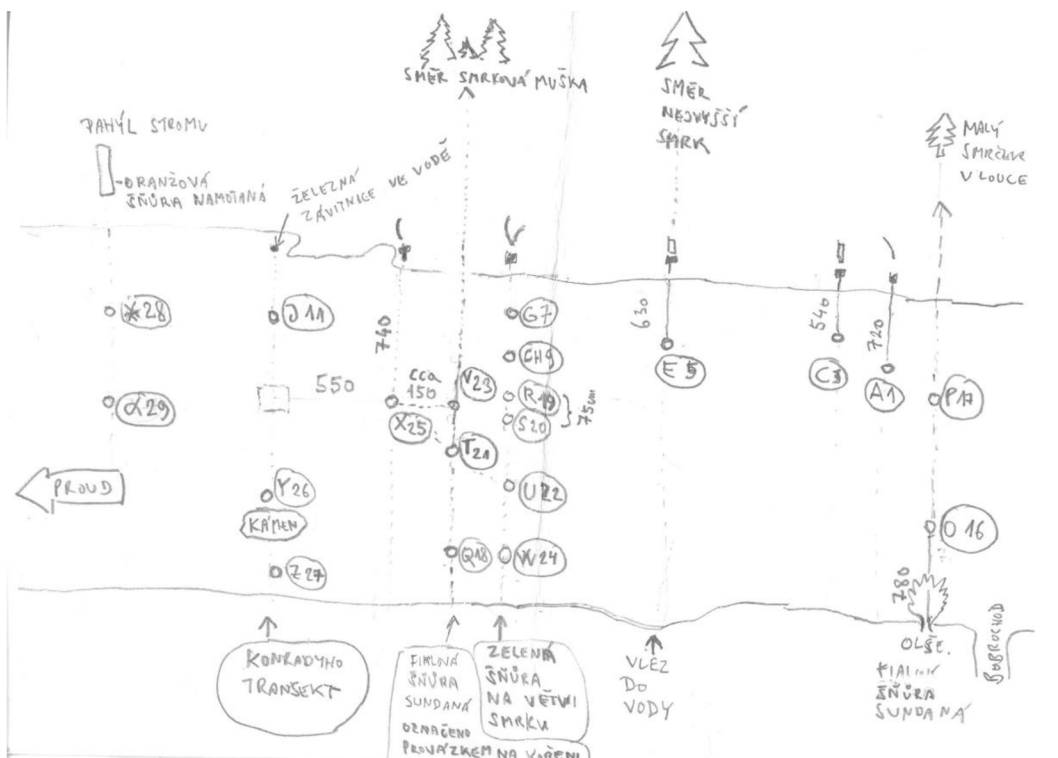 SMĚR SMRKOVÁ MUŠKA
SMĚR
NEJVYŠŠÍ
SMRK
MALÝ
SMRČEK
V LOUCE
PAHÝL STROMU
ORANŽOVÁ
ŠŇŮRA NAMOTANÁ
ŽELEZNÁ
ZÁVITNICE VE VODĚ
28
J11
G7
740
630
540
720
CH9
E5
C3
A1
α29
550
cca
150
V23
R19
S20
75cm
P17
X25
T21
PROUD
Y26
KÁMEN
U22
O16
Z27
Q18
W24
780
KONRADYHO
TRANSEKT
FIALOVÁ
ŠŇŮRA
SUNDANÁ
OZNAČENO
PROVÁZKEM NA KOŘENI
ZELENÁ
ŠŇŮRA
NA VĚTVI
SMRKU
VLEZ
DO
VODY
OLŠE
ŠŇŮRA
SUNDANÁ
BOBROCHOD